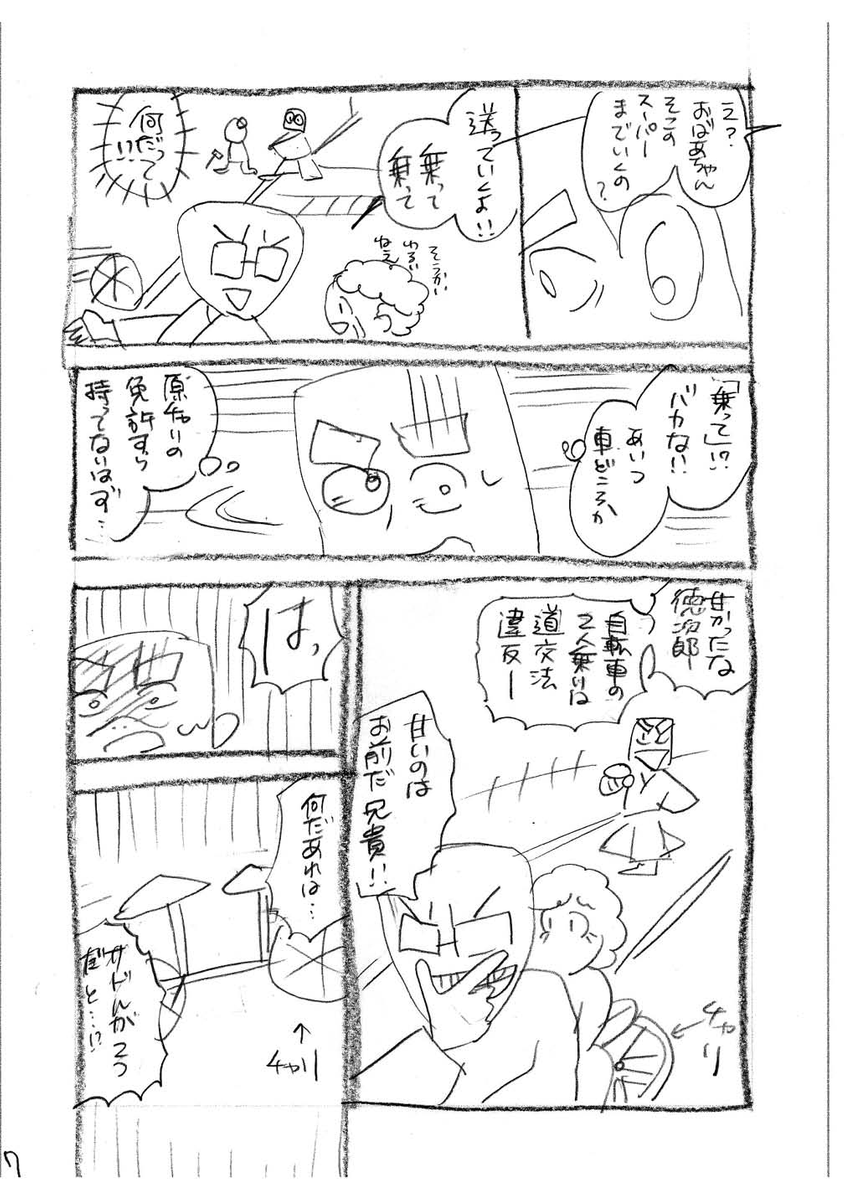 え?
おばあちゃん
そこの
スーパー
までいくの
?
送っていくよ!!
乗って
乗って
そうかい
わるい
ねえ
何だって
!!
「乗って」!?
バカな!!
あいつ
車どころか
原チャリの
免許すら
持ってないはず…
甘かったな
徳次郎
自転車の
2人乗りは
道交法
違反ー
甘いのは
お前だ兄貴!!
チャリ
はっ
何だあれは…
チャリ
サドルが2つ
だと…!?
7